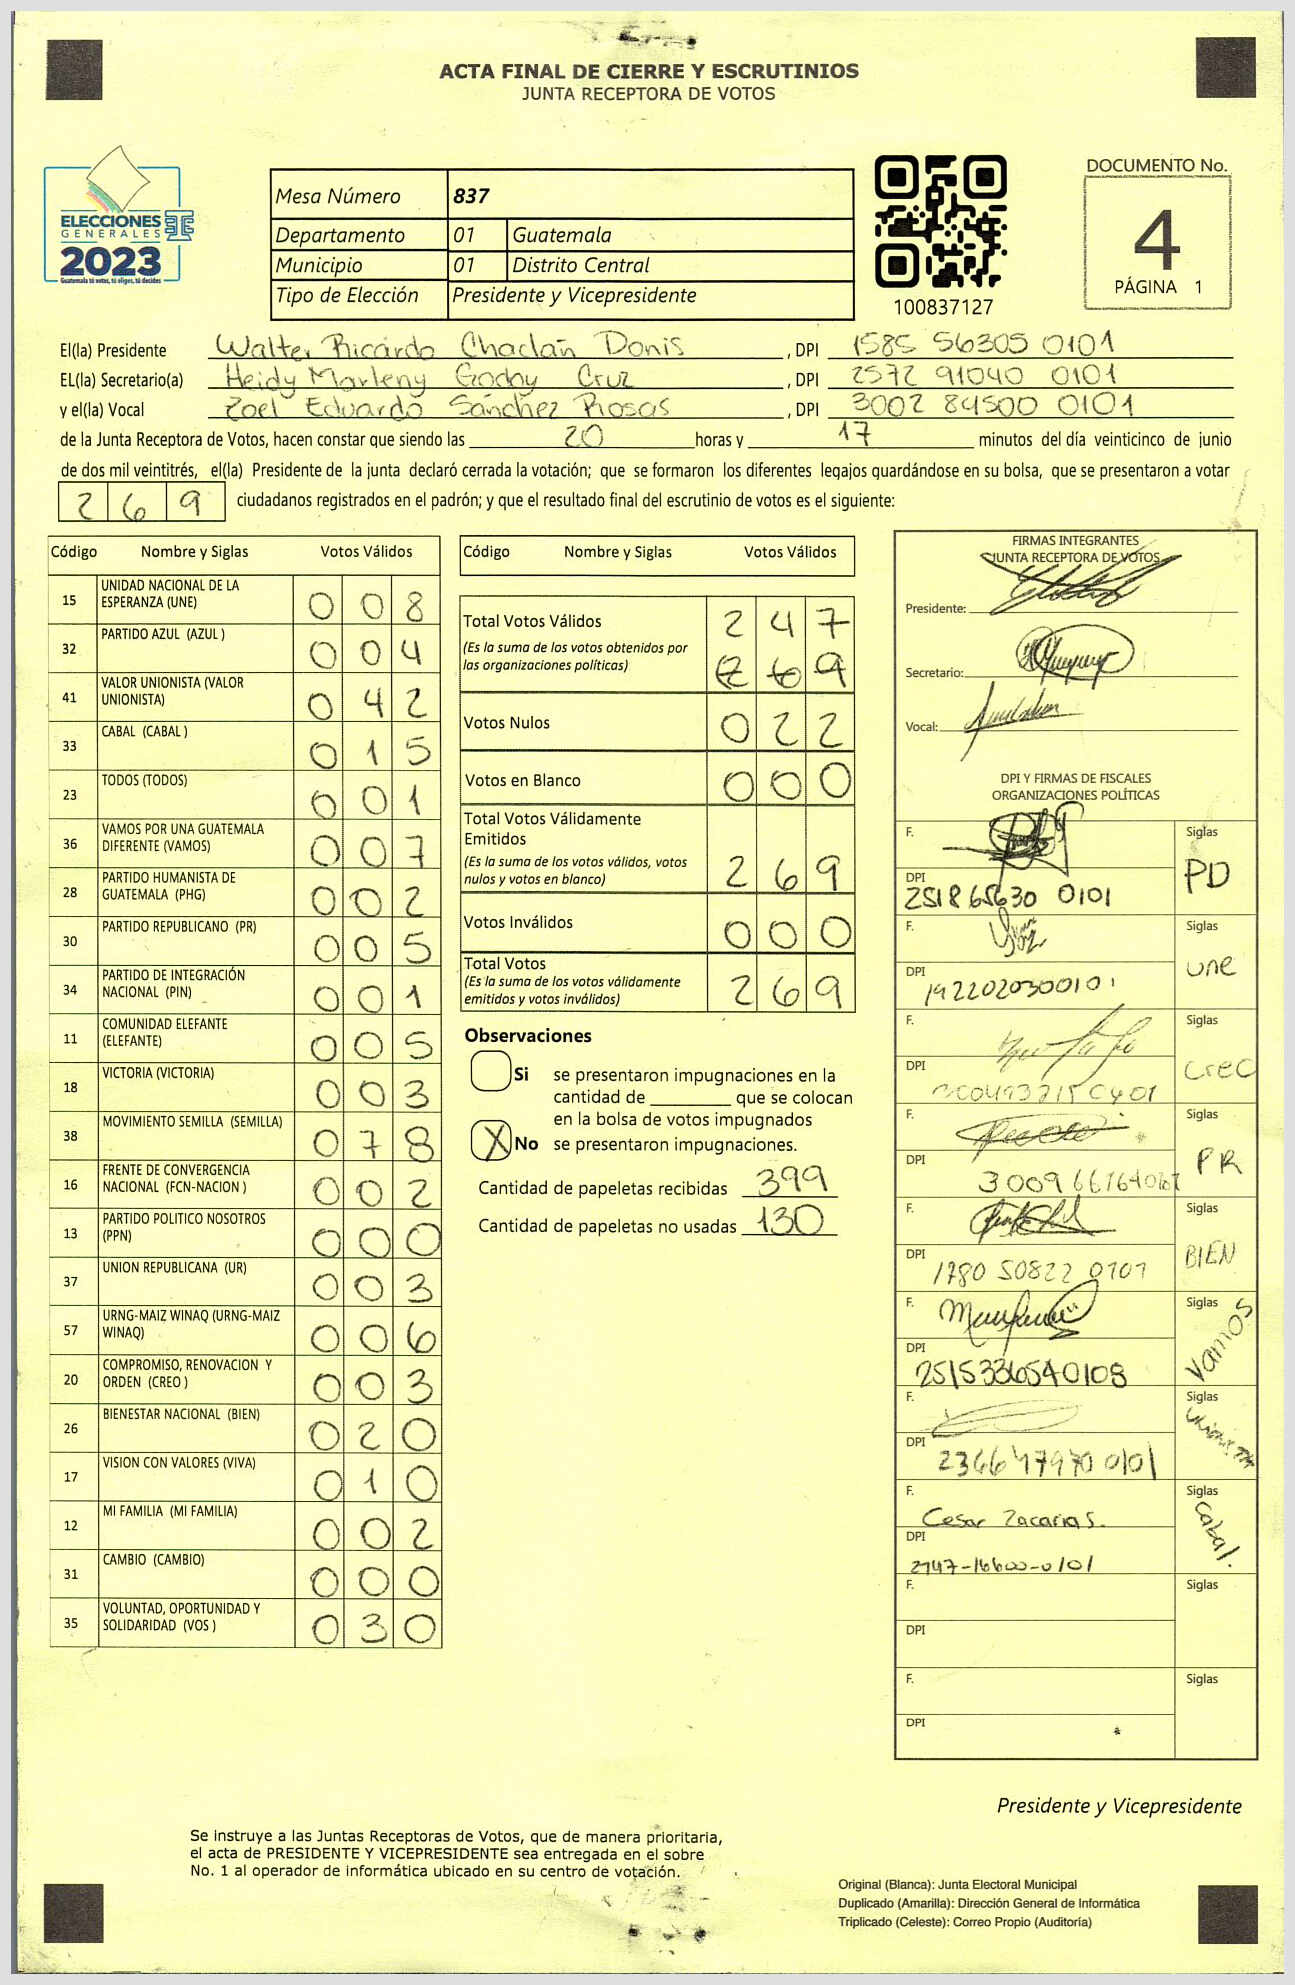 ACTA FINAL DE CIERRE Y ESCRUTINIOS
JUNTA RECEPTORA DE VOTOS
ELECCIONES
GENERALES
2023
Guatemala tú votas, tú eliges, tú decides
Mesa Número 837
Departamento 01 Guatemala
Municipio 01 Distrito Central
Tipo de Elección Presidente y Vicepresidente
100837127
DOCUMENTO No.
4
PÁGINA 1
El(la) Presidente Walter Ricardo Chaclán Donis , DPI 1585 56305 0101
EL(la) Secretario(a) Heidy Marleny Godoy Cruz , DPI 2572 91040 0101
y el(la) Vocal Zoel Eduardo Sánchez Rosas , DPI 3002 84500 0101
de la Junta Receptora de Votos, hacen constar que siendo las 20 horas y 17 minutos del día veinticinco de junio
de dos mil veintitrés, el(la) Presidente de la junta declaró cerrada la votación; que se formaron los diferentes legajos guardándose en su bolsa, que se presentaron a votar
269 ciudadanos registrados en el padrón; y que el resultado final del escrutinio de votos es el siguiente:
Código Nombre y Siglas Votos Válidos
15 UNIDAD NACIONAL DE LA ESPERANZA (UNE) 008
32 PARTIDO AZUL (AZUL ) 004
41 VALOR UNIONISTA (VALOR UNIONISTA) 042
33 CABAL (CABAL ) 015
23 TODOS (TODOS) 001
36 VAMOS POR UNA GUATEMALA DIFERENTE (VAMOS) 007
28 PARTIDO HUMANISTA DE GUATEMALA (PHG) 002
30 PARTIDO REPUBLICANO (PR) 005
34 PARTIDO DE INTEGRACIÓN NACIONAL (PIN) 001
11 COMUNIDAD ELEFANTE (ELEFANTE) 005
18 VICTORIA (VICTORIA) 003
38 MOVIMIENTO SEMILLA (SEMILLA) 078
16 FRENTE DE CONVERGENCIA NACIONAL (FCN-NACION ) 002
13 PARTIDO POLITICO NOSOTROS (PPN) 000
37 UNION REPUBLICANA (UR) 003
57 URNG-MAIZ WINAQ (URNG-MAIZ WINAQ) 006
20 COMPROMISO, RENOVACION Y ORDEN (CREO ) 003
26 BIENESTAR NACIONAL (BIEN) 020
17 VISION CON VALORES (VIVA) 010
12 MI FAMILIA (MI FAMILIA) 002
31 CAMBIO (CAMBIO) 000
35 VOLUNTAD, OPORTUNIDAD Y SOLIDARIDAD (VOS ) 030
Código Nombre y Siglas Votos Válidos
Total Votos Válidos 247
(Es la suma de los votos obtenidos por
las organizaciones políticas) 269
Votos Nulos 022
Votos en Blanco 000
Total Votos Válidamente
Emitidos
(Es la suma de los votos válidos, votos
nulos y votos en blanco) 269
Votos Inválidos 000
Total Votos
(Es la suma de los votos válidamente
emitidos y votos inválidos) 269
Observaciones
Si se presentaron impugnaciones en la
cantidad de ________ que se colocan
en la bolsa de votos impugnados
X No se presentaron impugnaciones.
Cantidad de papeletas recibidas 399
Cantidad de papeletas no usadas 130
FIRMAS INTEGRANTES
JUNTA RECEPTORA DE VOTOS
Presidente:
Secretario:
Vocal:
DPI Y FIRMAS DE FISCALES
ORGANIZACIONES POLÍTICAS
F. Siglas
DPI 2518 65630 0101 PD
F. Siglas
DPI 1922020300101 une
F. Siglas
DPI creo
F. Siglas
DPI PR
F. Siglas
DPI 1780 50822 0101 BIEN
F. Siglas
DPI 2515336540108 Vamos
F. Siglas
DPI 2366479700101
F. Cesar Zacarias. Siglas
DPI 2747-16600-0101 Cabal.
F. Siglas
DPI
F. Siglas
DPI
Presidente y Vicepresidente
Se instruye a las Juntas Receptoras de Votos, que de manera prioritaria,
el acta de PRESIDENTE Y VICEPRESIDENTE sea entregada en el sobre
No. 1 al operador de informática ubicado en su centro de votación.
Original (Blanca): Junta Electoral Municipal
Duplicado (Amarilla): Dirección General de Informática
Triplicado (Celeste): Correo Propio (Auditoría)